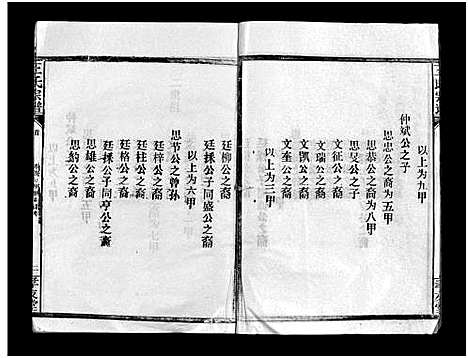 以上为九甲
仲斌公之子
思忠公之裔为五甲
思恭公之裔为八甲
思旻公之子
文征公之裔
文瑞公之裔
文凯公之裔
文奎公之裔
以上为三甲
廷柳公之裔
廷揉公子同盛公之裔
以上为六甲
思节公之曾孙
廷梓公之裔
廷柱公之裔
廷格公之裔
廷揉公子同亭公之裔
思雄公之裔
思韵公之裔
王氏宗谱
孝友堂